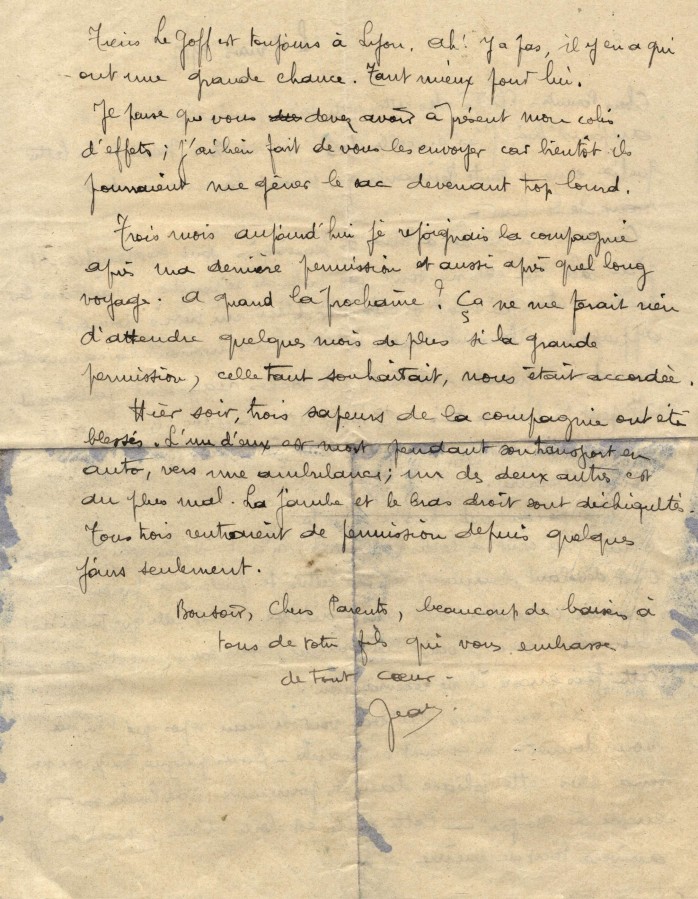 Le Goff est toujours à Lyon. Ah! y a pas, il y en a qui
ont une grande chance. Tant mieux pour lui.
Je pense que vous devez avoir à présent mon colis
d'effets ; j'ai bien fait de vous les envoyer car bientôt ils
pourraient me gêner le sac devenant trop lourd.
Trois mois aujourd'hui je rejoignais la compagnie
après ma dernière permission et aussi après quel long
voyage. A quand la prochaine ? Ça ne me ferait rien
d'attendre quelques mois de plus si la grande
permission, celle tant souhaitait, nous était accordée.
Hier soir, trois sapeurs de la compagnie ont été
blessés. L'un d'eux est mort pendant son transport en
auto, vers une ambulance ; un des deux autres est
au plus mal. La jambe et le bras droit sont déchiquétés.
Tous trois rentraient de permission depuis quelques
jours seulement.
Bonsoir, Chers Parents, beaucoup de baisers à
tous de votre fils qui vous embrasse
de tout cœur -
Jean.